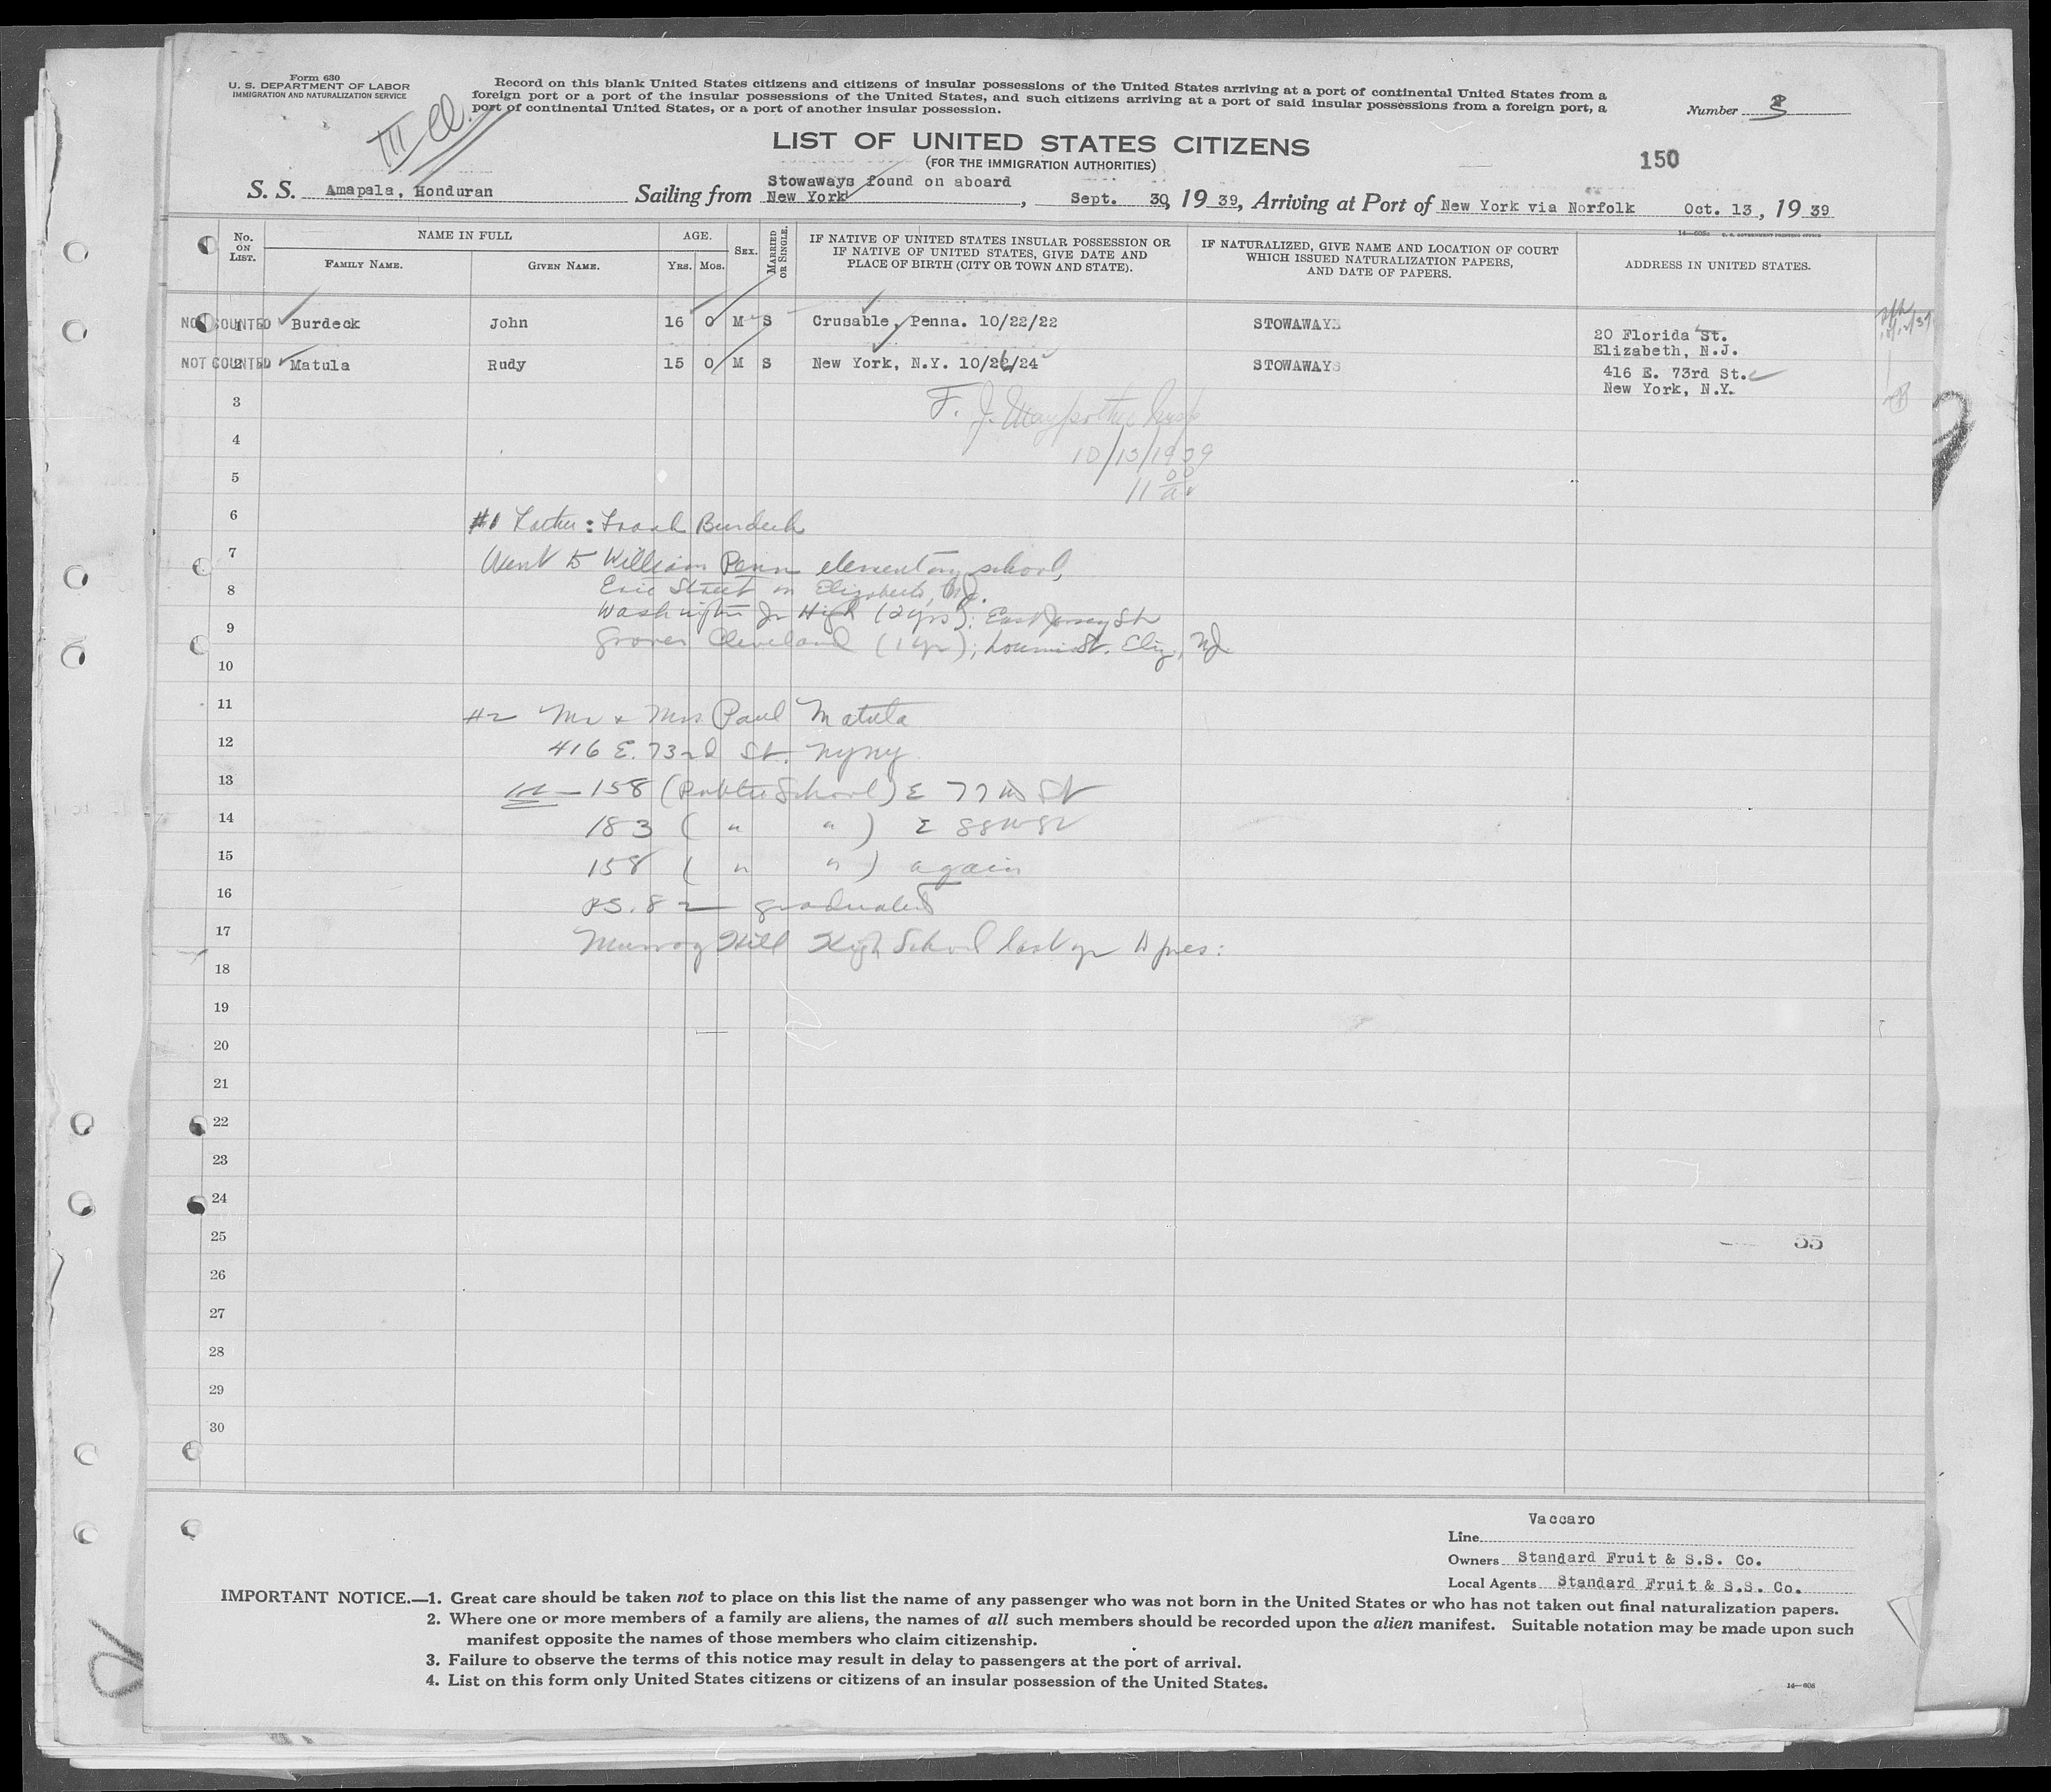 Form 630
U. S. DEPARTMENT OF LABOR
IMMIGRATION AND NATURALIZATION SERVICE
III Cl.
Record on this blank United States citizens and citizens of insular possessions of the United States arriving at a port of continental United States from a
foreign port or a port of the insular possessions of the United States, and such citizens arriving at a port of said insular possessions from a foreign port, a
port of continental United States, or a port of another insular possession.
Number
LIST OF UNITED STATES CITIZENS
(FOR THE IMMIGRATION AUTHORITIES)
150
Stowaways found on aboard
S. S. Amapala, Honduran Sailing from New York, Sept. 30, 1939, Arriving at Port of New York via Norfolk Oct. 13, 1939
No. ON LIST.
NAME IN FULL
FAMILY NAME. GIVEN NAME.
AGE.
YRS. MOS.
SEX.
MARRIED OR SINGLE.
IF NATIVE OF UNITED STATES INSULAR POSSESSION OR
IF NATIVE OF UNITED STATES, GIVE DATE AND
PLACE OF BIRTH (CITY OR TOWN AND STATE).
IF NATURALIZED, GIVE NAME AND LOCATION OF COURT
WHICH ISSUED NATURALIZATION PAPERS,
AND DATE OF PAPERS.
ADDRESS IN UNITED STATES.
NOT COUNTED 1 Burdeck John 16 0 M S Crusable, Penna. 10/22/22 STOWAWAYS 20 Florida St.
Elizabeth, N.J.
NOT COUNTED 2 Matula Rudy 15 0 M S New York, N.Y. 10/26/24 STOWAWAYS 416 E. 73rd St.
New York, N.Y.
3 F. J.
4 10/13/1939
5 11 00
6 #1 Father: Frank Burdeck
7 Went to William Penn elementary school,
8 Erie Street in Elizabeth, N.J.
Washington Jr High (2 yrs); East Jersey St
9 Grover Cleveland (1 yr); St. Eliz., NJ
10
11 #2 Mr & Mrs Paul Matula
12 416 E. 73rd St. NYNY
13 158 (Public School) E 77th St
14 183 ( " " ) E 88th St
15 158 ( " " ) again
16 P.S. 82 graduated
17 Murray Hill High School last yr to pres:
18
19
20
21
22
23
24
25 55
26
27
28
29
30
Line Vaccaro
Owners Standard Fruit & S.S. Co.
Local Agents Standard Fruit & S.S. Co.
IMPORTANT NOTICE.—1. Great care should be taken not to place on this list the name of any passenger who was not born in the United States or who has not taken out final naturalization papers.
2. Where one or more members of a family are aliens, the names of all such members should be recorded upon the alien manifest. Suitable notation may be made upon such
manifest opposite the names of those members who claim citizenship.
3. Failure to observe the terms of this notice may result in delay to passengers at the port of arrival.
4. List on this form only United States citizens or citizens of an insular possession of the United States.
14—608